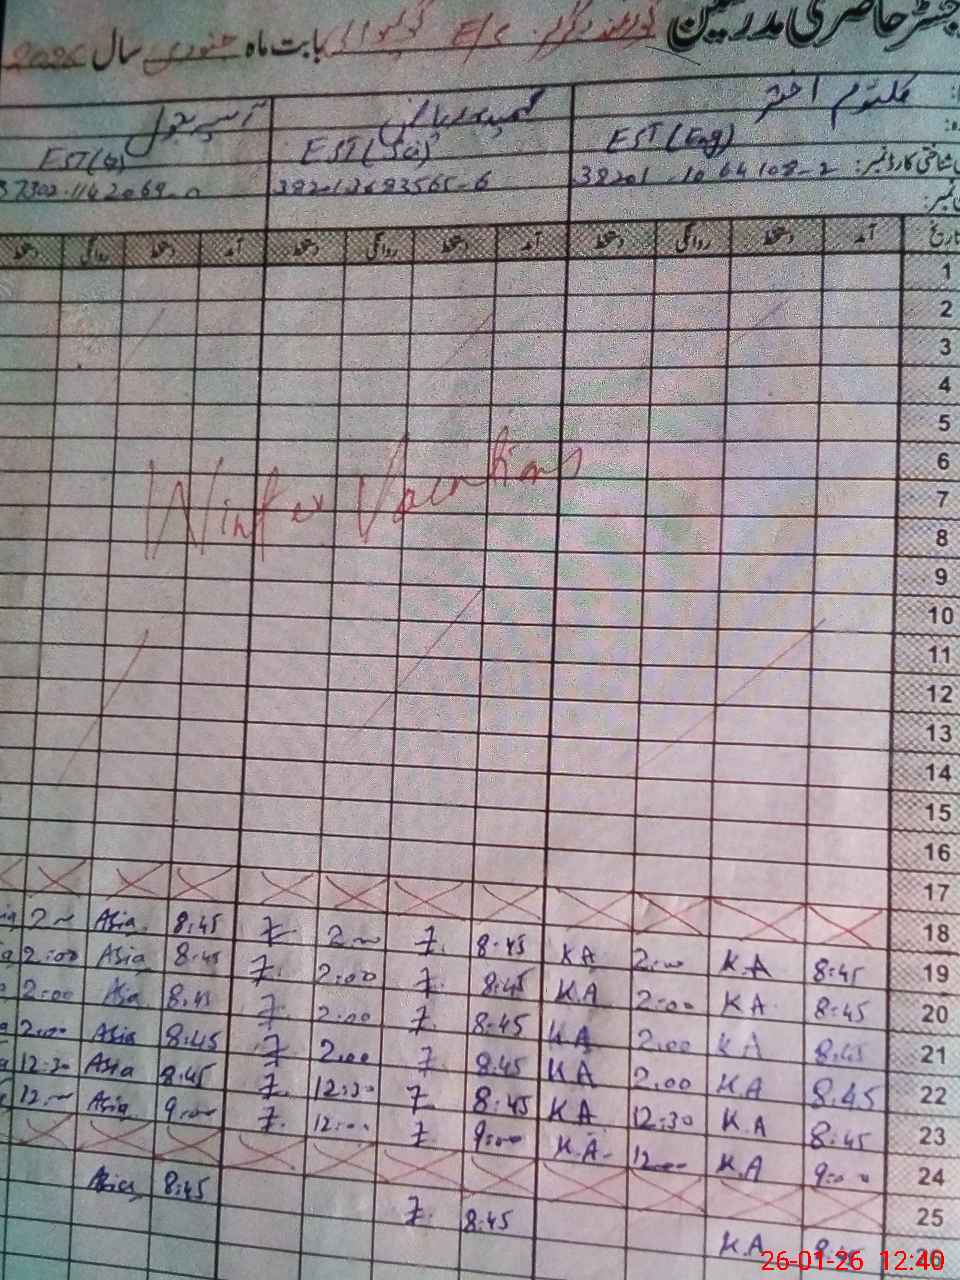 رجسٹر حاضری مدرسین گورنمنٹ گرلز E/S بابت ماہ جنوری سال 2026
کلثوم اختر
EST (Eng) EST (Sci) EST
شناختی کارڈ نمبر: 38201-1064108-2 382012683565-6
تاریخ آمد دستخط روانگی دستخط آمد دستخط روانگی دستخط آمد دستخط روانگی دستخط
1
2
3
4
5
6
Winter Vacations
7
8
9
10
11
12
13
14
15
16
17
18
19 8:45 K.A 2:00 KA 8:45 Z. 2:00 Z 8:45 Asia 2:00
20 8:45 KA 2:00 K.A 8:45 Z. 2:00 Z. 8:45 Asia 2:00
21 8:45 KA 2:00 KA 8:45 Z. 2:00 Z 8:45 Asia 2:00
22 8:45 KA 2:00 KA 8:45 Z 2:00 Z 8:45 Asia 2:00
23 8:45 K.A 12:30 KA 8:45 Z 12:30 Z. 8:45 Asia 12:30
24 9:00 K.A 12:00 K.A 9:00 Z 12:00 Z. 9:00 Asia 12:00
25
26 8:45 K.A 8:45 Z. 8:45 Asia
26-01-26 12:40